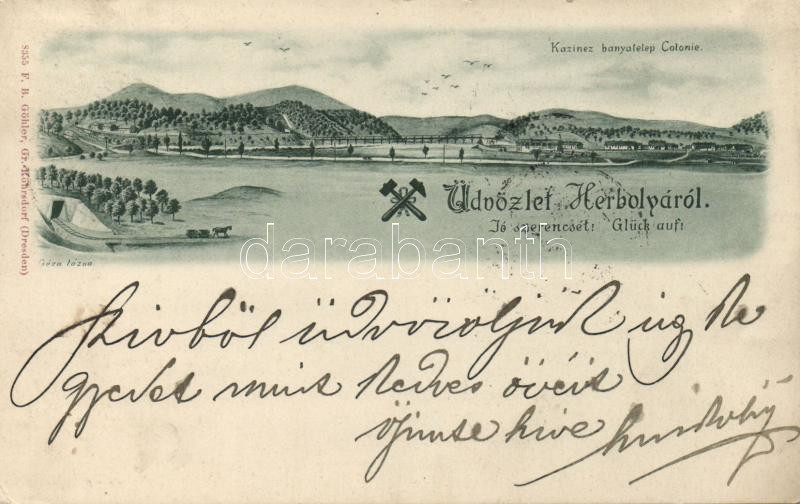 Kazincz banyatelep Colonie.
Üdvözlet Herbolyáról.
Jó szerencsét! Glück auf!
Géza tázna.
8355 F. B. Göhler, Gr.-Röhrsdorf (Dresden)
darabanth
Szivböl üdvözöljük ug
mint kedves övéit
hive